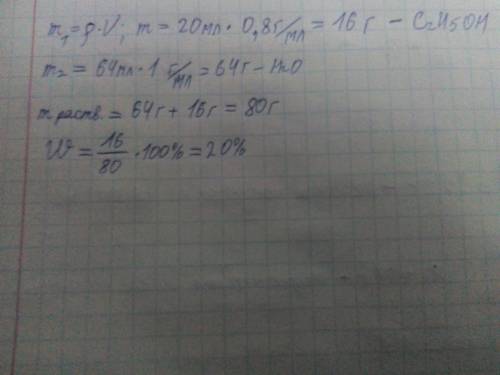 m₁=ρ·V; m = 20мл · 0,8г/мл = 16 г - C₂H₅OH
m₂ = 64мл·1 г/мл = 64г - H₂O
m раств. = 64г + 16г = 80г
W = 16/80 · 100% = 20%